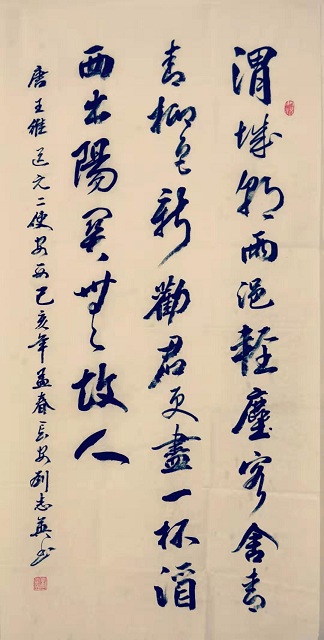 渭城朝雨浥輕塵客舍青
青柳色新勸君更盡一杯酒
西出陽関無故人
唐王維送元二使安西己亥年孟春長安刘志英书